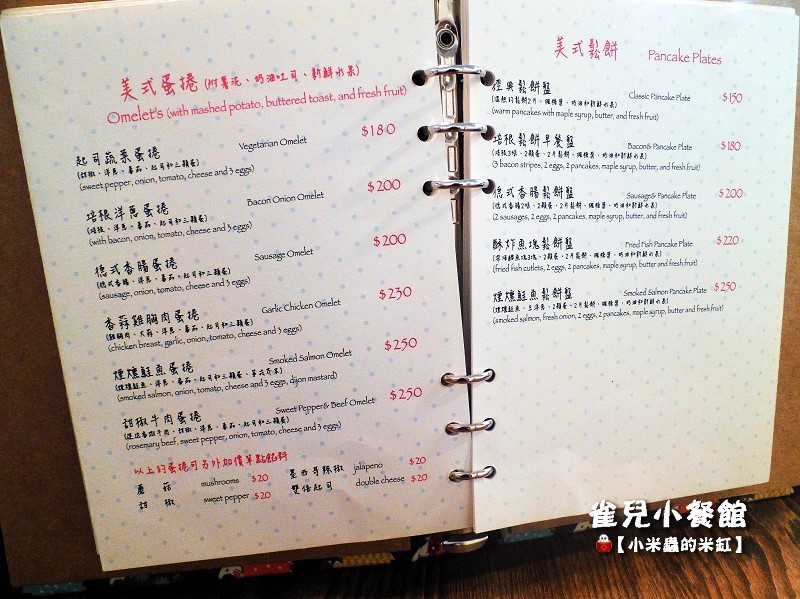 美式蛋捲 (附薯泥、奶油吐司、新鮮水果)
Omelet's (with mashed potato, buttered toast, and fresh fruit)
起司蔬菜蛋捲 Vegetarian Omelet $180
(甜椒、洋蔥、番茄、起司和三顆蛋)
(sweet pepper, onion, tomato, cheese and 3 eggs)
培根洋蔥蛋捲 Bacon Onion Omelet $200
(培根、洋蔥、番茄、起司和三顆蛋)
(with bacon, onion, tomato, cheese and 3 eggs)
德式香腸蛋捲 Sausage Omelet $200
(德式香腸、洋蔥、番茄、起司和三顆蛋)
(sausage, onion, tomato, cheese and 3 eggs)
香蒜雞胸肉蛋捲 Garlic Chicken Omelet $230
(雞胸肉、大蒜、洋蔥、番茄、起司和三顆蛋)
(chicken breast, garlic, onion, tomato, cheese and 3 eggs)
煙燻鮭魚蛋捲 Smoked Salmon Omelet $250
(煙燻鮭魚、洋蔥、番茄、起司和三顆蛋、第戎芥末)
(smoked salmon, onion, tomato, cheese and 3 eggs, dijon mastard)
甜椒牛肉蛋捲 Sweet Pepper & Beef Omelet $250
(迷迭香牛肉、甜椒、洋蔥、番茄、起司和三顆蛋)
(rosemary beef, sweet pepper, onion, tomato, cheese and 3 eggs)
以上的蛋捲可另外加價單點餡料
蘑菇 mushrooms $20 墨西哥辣椒 jalapeno $20
甜椒 sweet pepper $20 雙倍起司 double cheese $20
美式鬆餅 Pancake Plates
經典鬆餅盤 Classic Pancake Plate $150
(溫熱的鬆餅2片、楓糖醬、奶油和新鮮水果)
(warm pancakes with maple syrup, butter, and fresh fruit)
培根鬆餅早餐盤 Bacon & Pancake Plate $180
(培根3條、2顆蛋、2片鬆餅、楓糖醬、奶油和新鮮水果)
(3 bacon stripes, 2 eggs, 2 pancakes, maple syrup, butter, and fresh fruit)
德式香腸鬆餅盤 Sausage & Pancake Plate $200
(德式香腸2條、2顆蛋、2片鬆餅、楓糖醬、奶油和新鮮水果)
(2 sausages, 2 eggs, 2 pancakes, maple syrup, butter, and fresh fruit)
酥炸魚塊鬆餅盤 Fried Fish Pancake Plate $220
(2顆蛋、2片鬆餅、楓糖醬、奶油和新鮮水果)
(fried fish cutlets, 2 eggs, 2 pancakes, maple syrup, butter and fresh fruit)
煙燻鮭魚鬆餅盤 Smoked Salmon Pancake Plate $250
(煙燻鮭魚、生洋蔥、2顆蛋、2片鬆餅、楓糖醬、奶油和新鮮水果)
(smoked salmon, fresh onion, 2 eggs, 2 pancakes, maple syrup, butter and fresh fruit)
雀兒小餐館
【小米蟲的米缸】